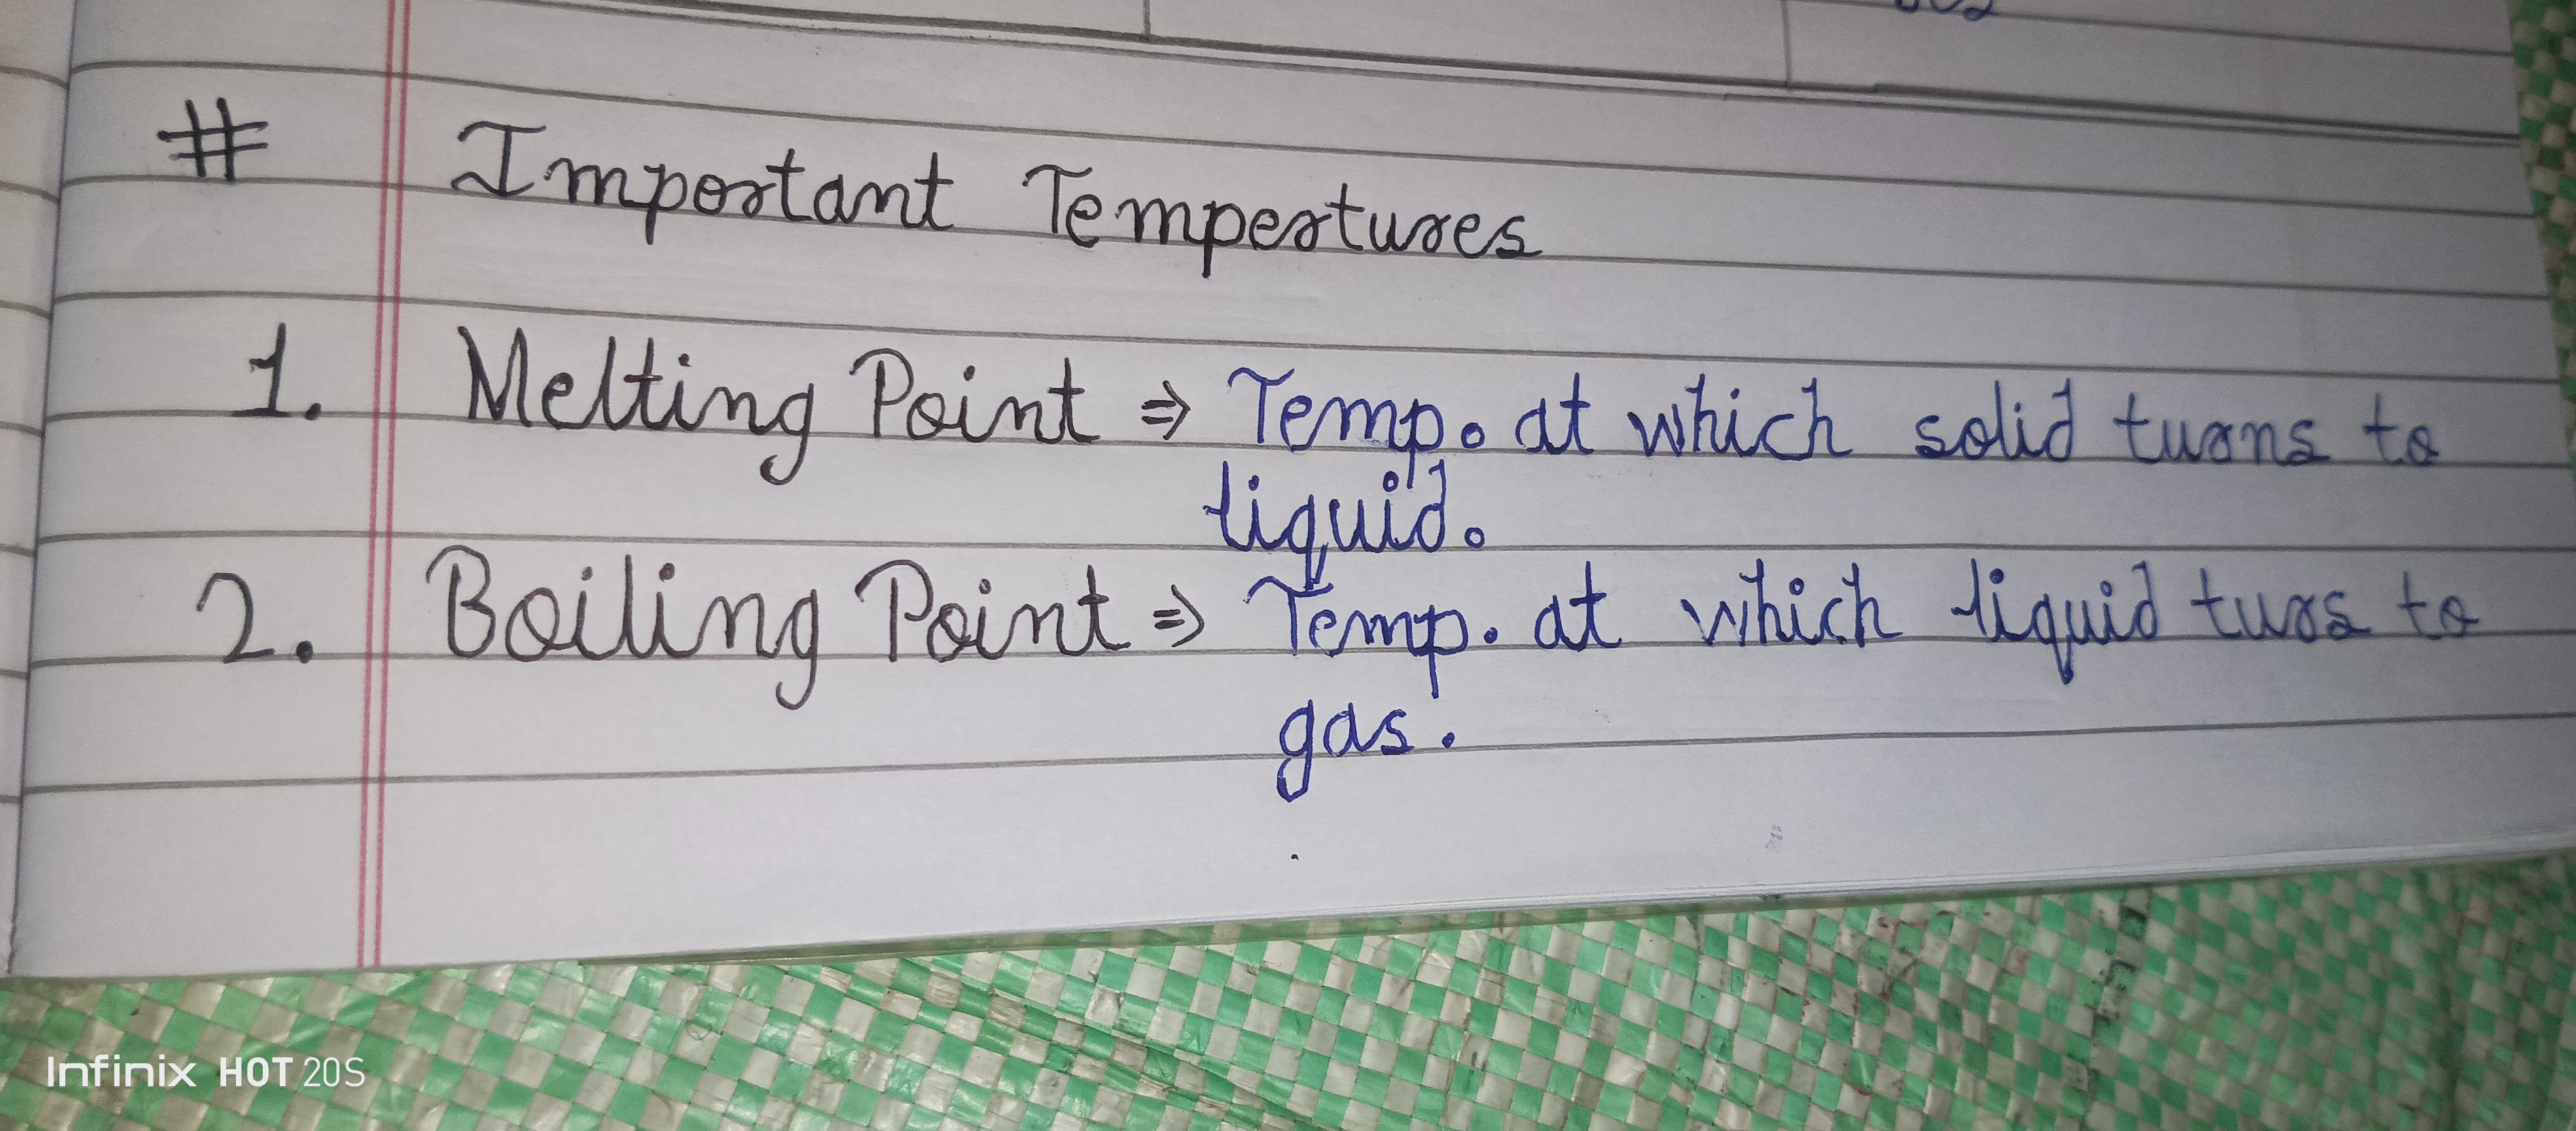 # Important Tempertures
1. Melting Point ⇒ Temp. at which solid turns to
liquid.
2. Boiling Point ⇒ Temp. at which liquid turs to
gas.
Infinix HOT 20S